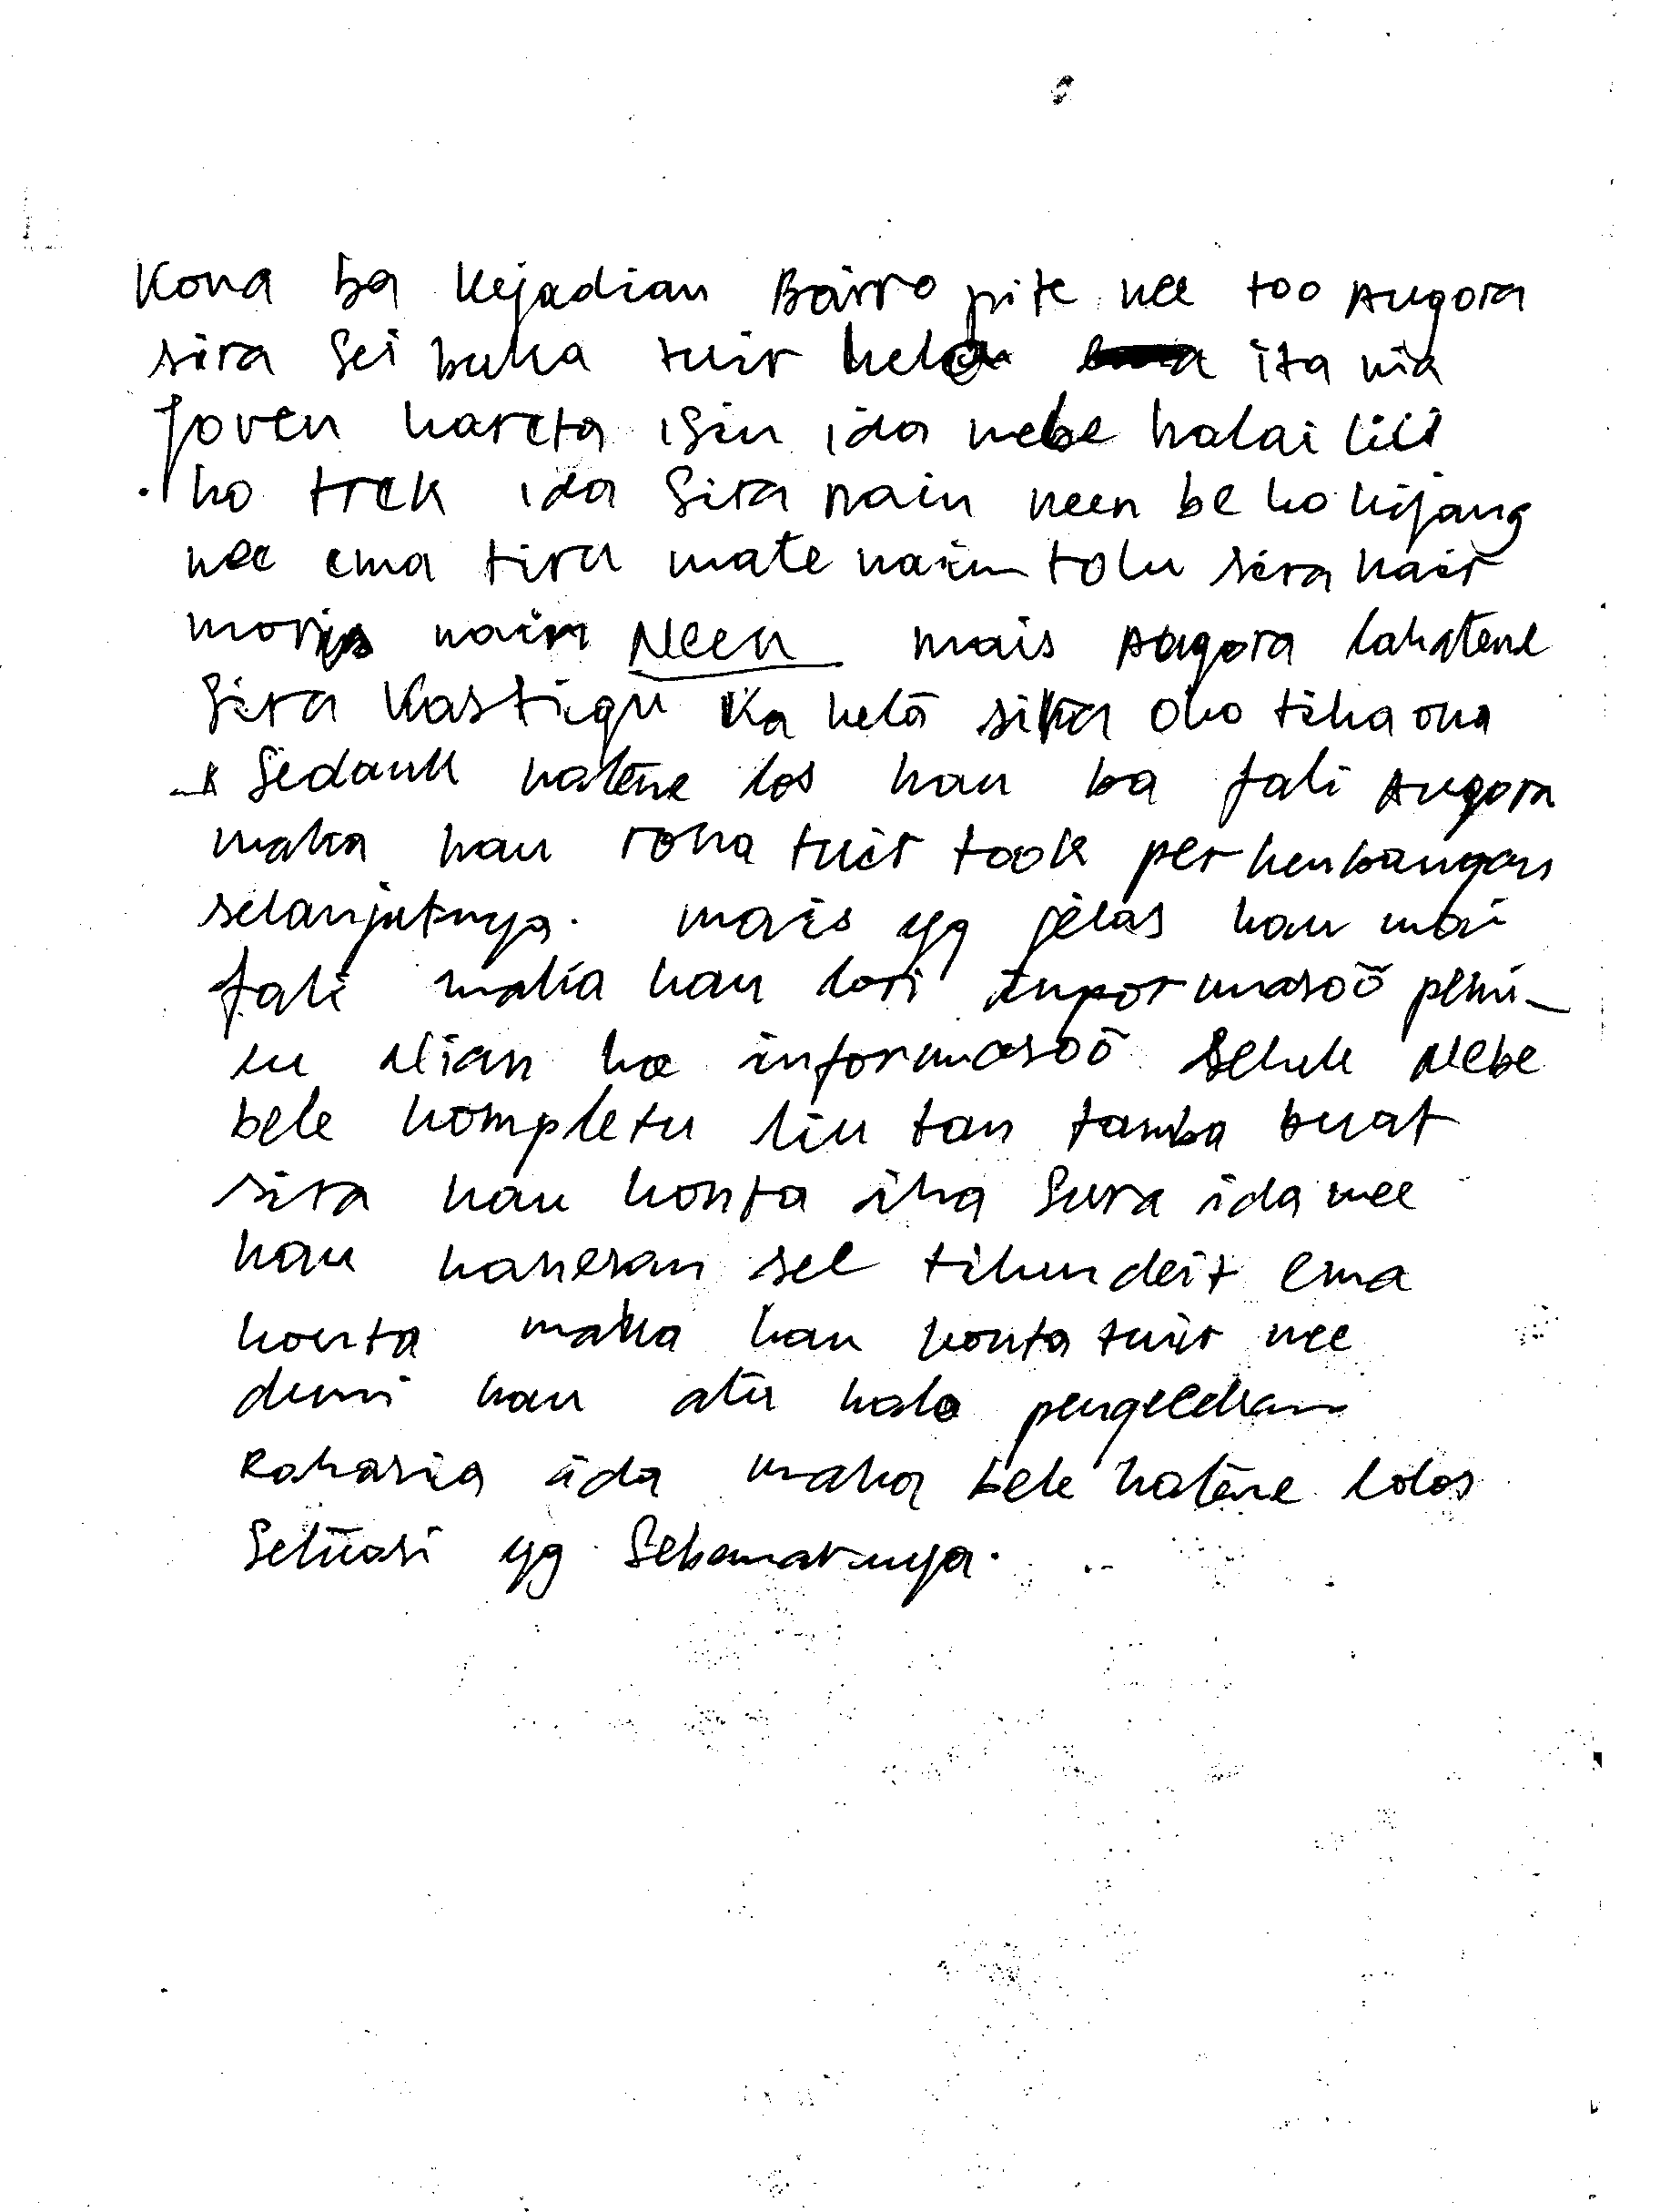 Kona ba kejadian Bairro pite nee too Angora
sira sei buka tuir hela ita nia
Joven kareta isin ida nebe halai liu
ho trek ida sira nain neen be ho kijang
nee ema tiru mate nain tolu sira nair
moris nain Neen mais Angora lahatene
Sira Kastigu Ka hela sira oho tiha ona
Sedauk hatene los hau ba fali Angora
maka hau rona tuir took perkenbangan
selanjutnya. mais yg jelas hau mai
fali maka hau lori inpormasoõ pemi-
lu Nian ho informasoõ seluk Nebe
bele kompletu liu tan tamba buat
sira hau konta iha Sura ida nee
hau hanesan sel tihun deit ema
konta maka hau konta tuir nee
dumi hau atu halo pengecekan
Rahasia ida maka bele hatene lolos
Setuasi yg Sebenarnya.